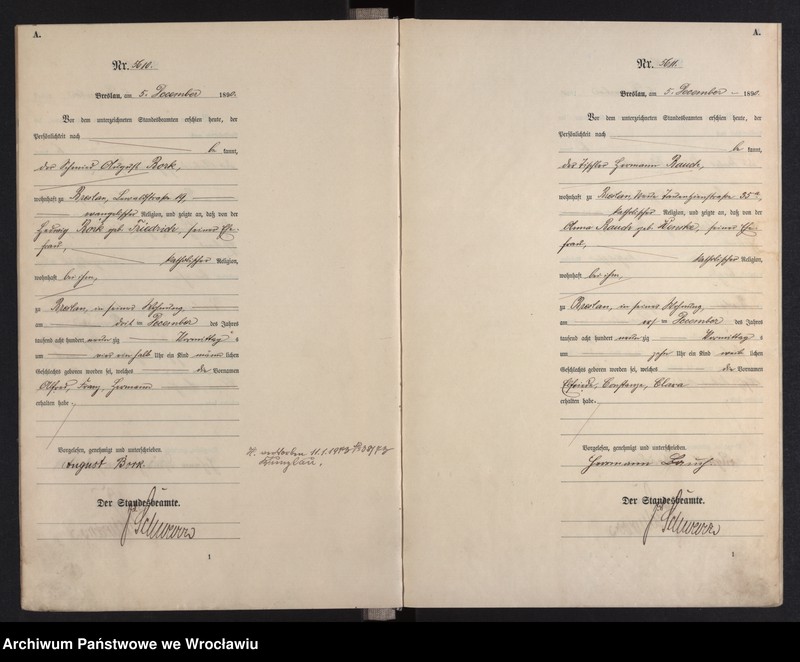 A.
Nr. 3610.
Breslau, am 5. December 1890.
Vor dem unterzeichneten Standesbeamten erschien heute, der
Persönlichkeit nach
be kannt,
der Schmied August Bork,
wohnhaft zu Breslau, 19,
evangelischer Religion, und zeigte an, daß von der
Hedwig Bork geb. Friedrich, seiner Ehe-
frau,
katholischer Religion,
wohnhaft bei ihm,
zu Breslau, in seiner Wohnung
am December des Jahres
tausend acht hundert neun zig Vormittags
um ein halb Uhr ein Kind männ lichen
Geschlechts geboren worden sei, welches die Vornamen
Alfred, Franz, Hermann
erhalten habe.
Vorgelesen, genehmigt und unterschrieben.
August Bork
Der Standesbeamte.
1
verstorben 11.1.1973
A.
Nr.
Breslau, am 5. December 1890.
Vor dem unterzeichneten Standesbeamten erschien heute, der
Persönlichkeit nach
be kannt,
der Tischler Hermann
wohnhaft zu Breslau, Neue Tauentzienstraße
katholischer Religion, und zeigte an, daß von der
Anna geb. seiner Ehe-
frau,
katholischer Religion,
wohnhaft bei ihm,
zu Breslau, in seiner Wohnung
am December des Jahres
tausend acht hundert neun zig Vormittags
um zehn Uhr ein Kind weib lichen
Geschlechts geboren worden sei, welches die Vornamen
Elfriede, Constanze, Clara
erhalten habe.
Vorgelesen, genehmigt und unterschrieben.
Hermann
Der Standesbeamte.
1
Archiwum Państwowe we Wrocławiu